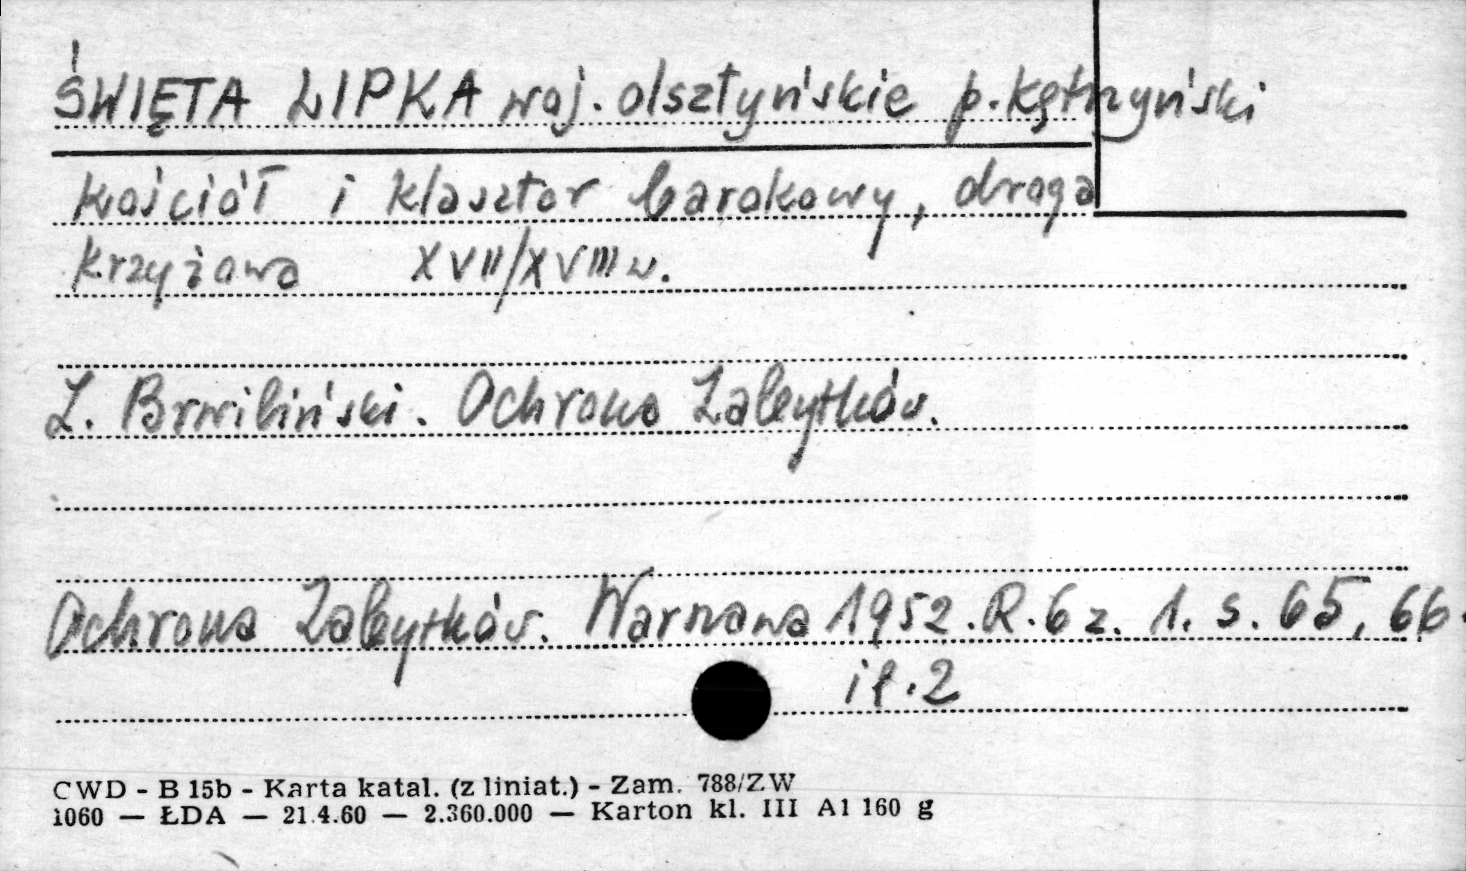 ŚWIĘTA LIPKA woj. olsztyńskie p. kętrzyński
kościół i klasztor barokowy, droga
krzyżowa XVII/XVIII w.
Z. Brwiliński. Ochrona Zabytków.
Ochrona Zabytków. Warszawa 1952. R. 6 z. 1. s. 65, 66.
il. 2
CWD - B 15b - Karta katal. (z liniat.) - Zam. 788/ZW
1060 — ŁDA — 21.4.60 — 2.360.000 — Karton kl. III A1 160 g